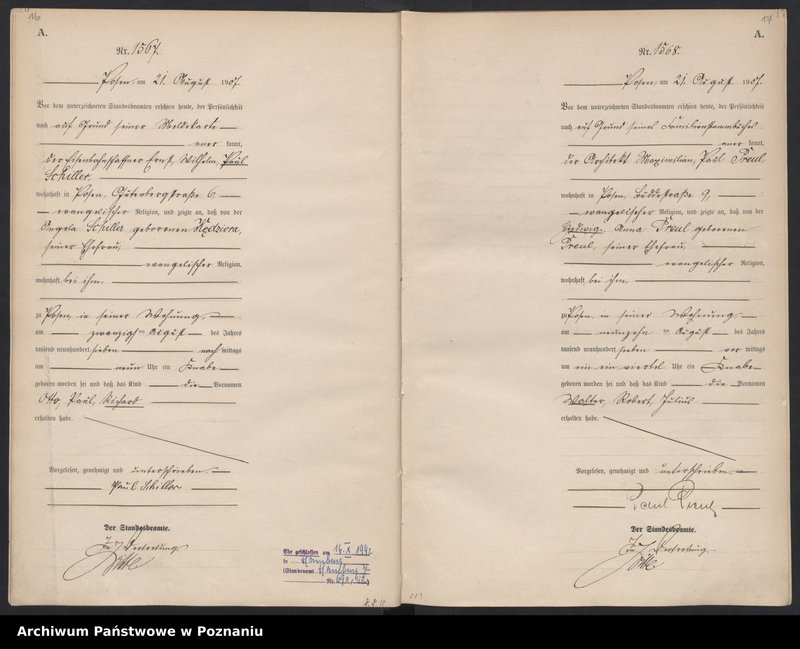 16
A.
Nr. 1567.
Posen, am 21. August 1907.
Vor dem unterzeichneten Standesbeamten erschien heute, der Persönlichkeit
nach auf Grund seiner Meldekarte
aner kannt,
der Eisenbahnschaffner Ernst, Wilhelm, Paul
Schiller,
wohnhaft in Posen, Gutenbergstraße 6
evangelischer Religion, und zeigte an, daß von der
Angela Schiller geborenen Kędziora,
seiner Ehefrau,
evangelischer Religion,
wohnhaft bei ihm,
zu Posen, in seiner Wohnung,
am zwanzigsten August des Jahres
tausend neunhundert sieben nach mittags
um neun Uhr ein Knabe
geboren worden sei und daß das Kind die Vornamen
Otto, Paul, Richard
erhalten habe.
Vorgelesen, genehmigt und unterschrieben.
Paul Schiller
Der Standesbeamte.
In Vertretung
Ehe geschlossen am 16. X. 1941
in
(Standesamt
Nr.
17
A.
Nr. 1568.
Posen, am 21. August 1907.
Vor dem unterzeichneten Standesbeamten erschien heute, der Persönlichkeit
nach auf Grund seines Familienstammbuches
aner kannt,
der Architekt Maximilian, Paul Preul
wohnhaft in Posen, Buddestraße 9,
evangelischer Religion, und zeigte an, daß von der
Hedwig, Anna Preul geborenen
Preul, seiner Ehefrau,
evangelischer Religion,
wohnhaft bei ihm,
zu Posen, in seiner Wohnung
am neunzehn ten August des Jahres
tausend neunhundert sieben vor mittags
um ein ein viertel Uhr ein Knabe
geboren worden sei und daß das Kind die Vornamen
Walter, Robert, Julius
erhalten habe.
Vorgelesen, genehmigt und unterschrieben.
Paul Preul
Der Standesbeamte.
In Vertretung
Archiwum Państwowe w Poznaniu